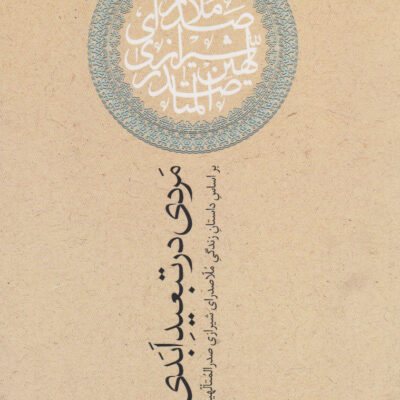 ملاصدرای
شیرازی
صدر المتالهین
مَردی در تبعیدِ اَبَدی
بر اساس داستانِ زندگیِ مُلّاصدرای شیرازی صدرالمُتَالّهین